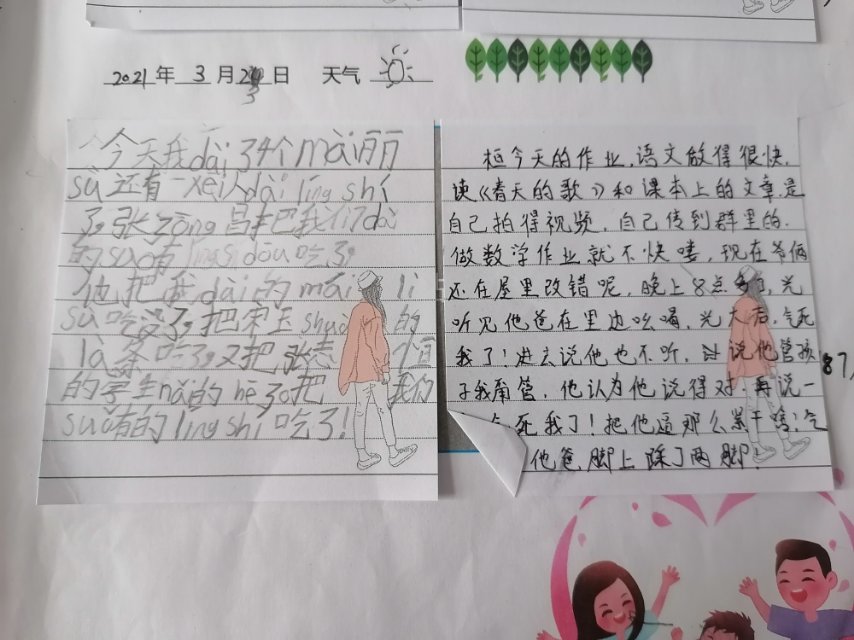 2021年 3月23日 天气
今天我dài了4个mài丽
sù还有一xiē dài líng shí
了,张zōng昌把我们dài
的suǒ有língsí dōu吃了,
他把我dài的mài li
sù吃没了,把宋玉shuò的
là条吃了,又把张志 个间
的学生nǎi的hē了,把 我们
suǒ有的língshí吃了!
桓今天的作业,语文做得很快,
读《春天的歌》和课本上的文章是
自己拍得视频,自己传到群里的,
做数学作业就不快喽,现在爷俩
还在屋里改错呢,晚上8点 光
听见他爸在里边吆喝,光大 后,气死
我了!进去说他也不听,说他管孩
子我甭管,他认为他说得对,再说一
气死我了!把他逼那么累干啥!气
他爸脚上踩了两脚!
87